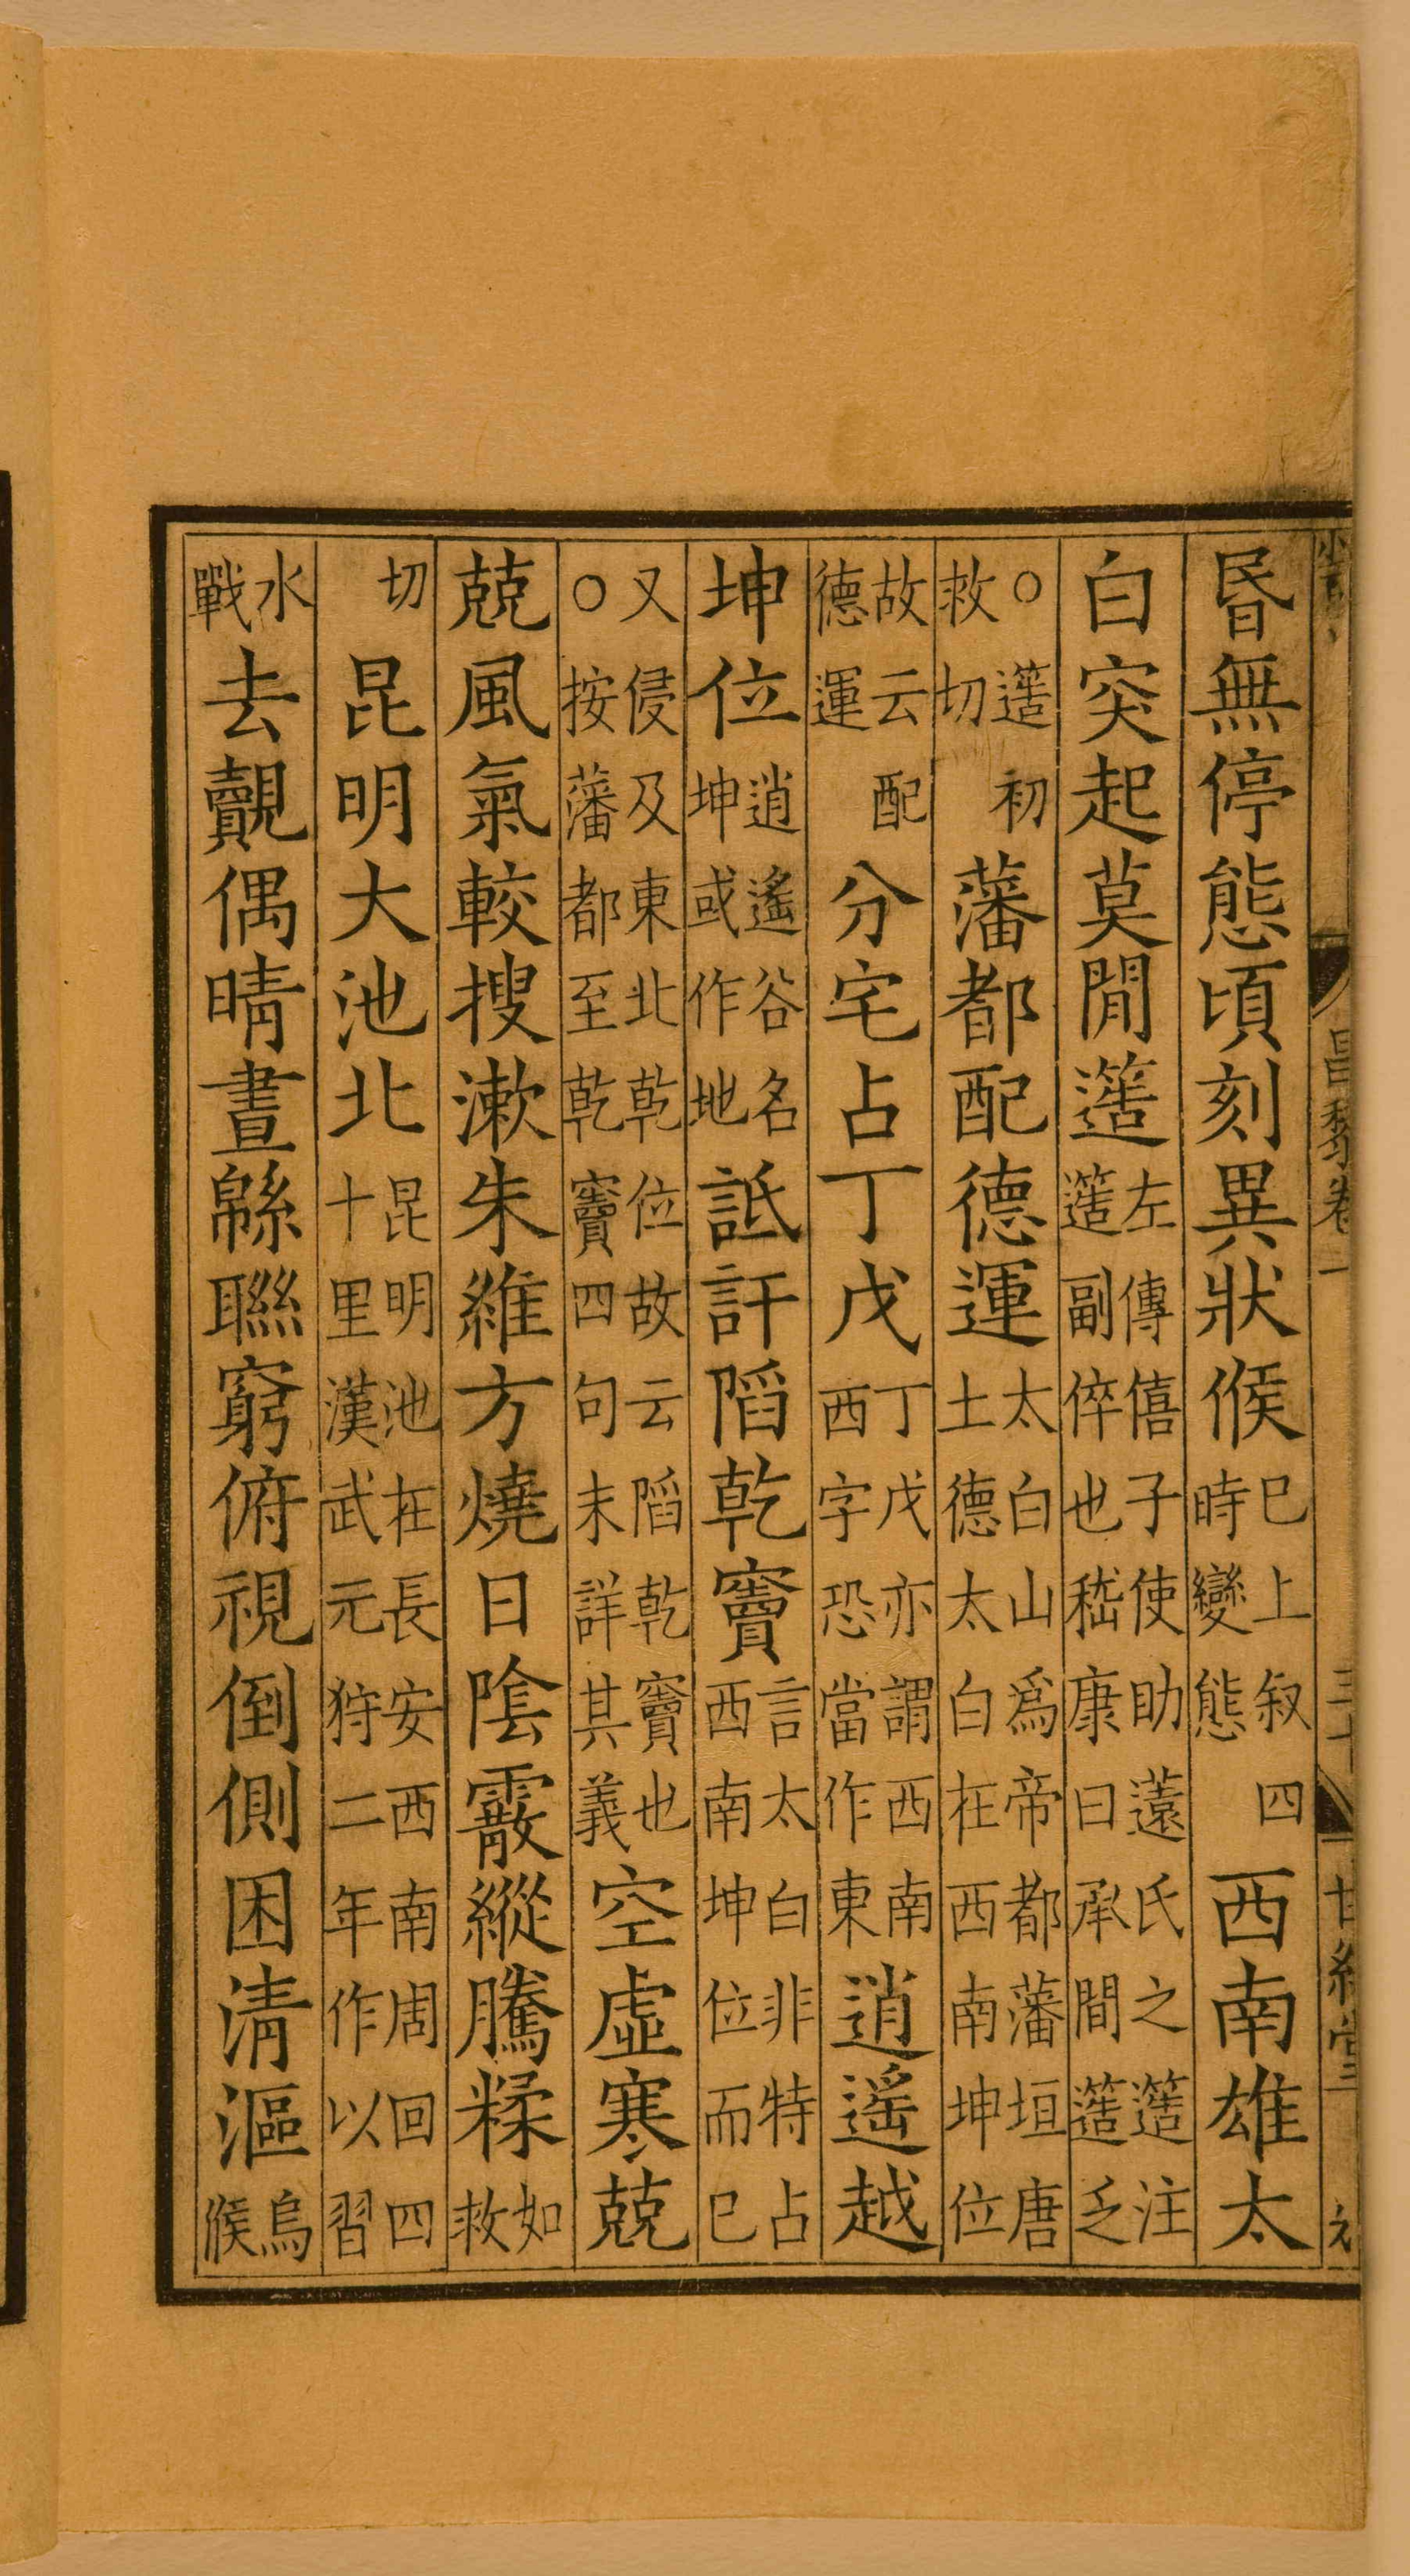 昬無停態頃刻異狀𠋫巳上叙四時變態西南雄太
白突起莫閒簉左傳僖子使助薳氏之簉注簉副倅也嵇康曰承間簉乏
○簉初救切藩都配德運太白山爲帝都藩垣唐土德太白在西南坤位
故云配德運分宅占丁戊丁戊亦謂西南西字恐當作東逍遥越
坤位逍遥谷名坤或作地詆訐䧟乾竇言太白非特占西南坤位而巳
又侵及東北乾位故云䧟乾竇也○按藩都至乾竇四句未詳其義空虛寒兢
兢風氣較搜漱朱維方燒日陰霰縱騰糅如救
切昆明大池北昆明池在長安西南周回四十里漢武元狩二年作以習
水戰去覿偶晴晝緜聯窮俯視倒側困清漚烏𠋫
昌黎卷一